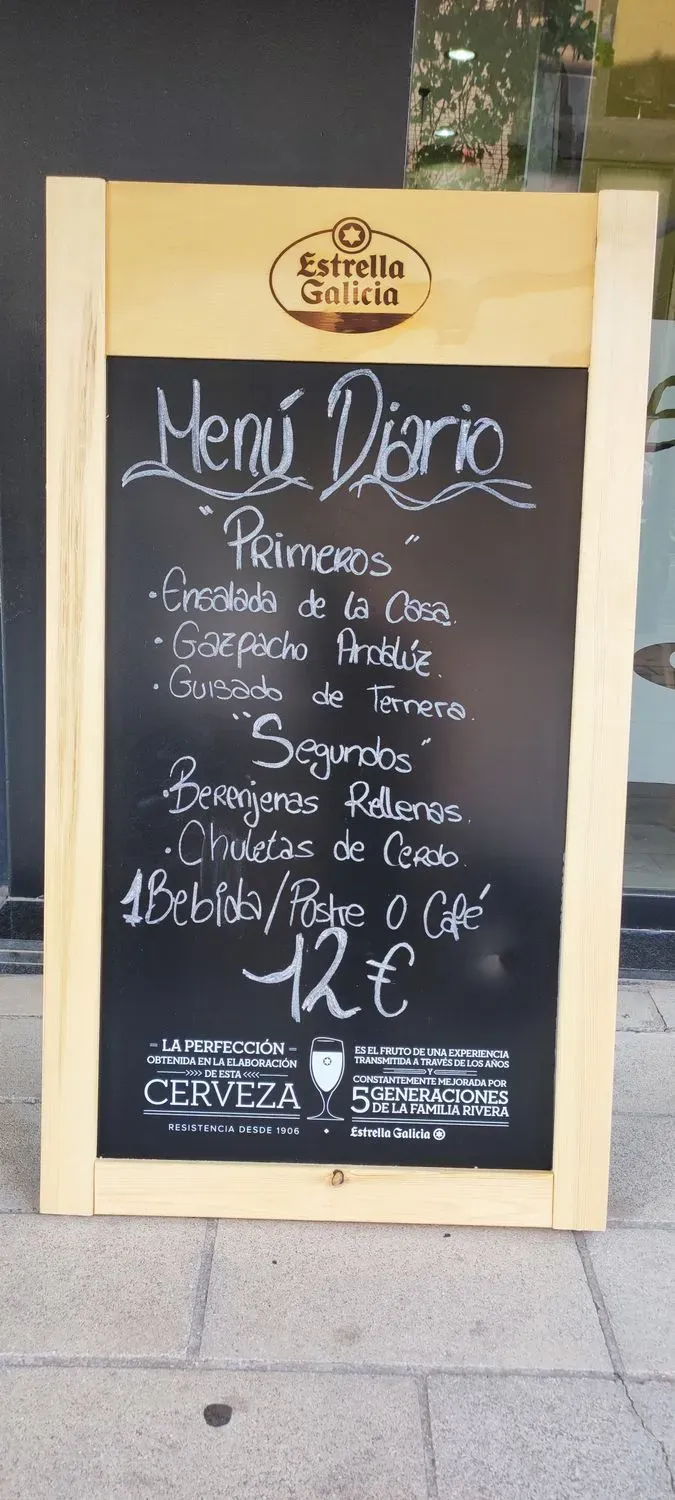 Estrella
Galicia
Menú Diario
"Primeros"
·Ensalada de la Casa.
·Gazpacho Andalúz.
·Guisado de Ternera.
"Segundos"
·Berenjenas Rellenas.
·Chuletas de Cerdo.
1Bebida/Postre O Café
12€
LA PERFECCIÓN
OBTENIDA EN LA ELABORACIÓN
DE ESTA
CERVEZA
RESISTENCIA DESDE 1906
ES EL FRUTO DE UNA EXPERIENCIA
TRANSMITIDA A TRAVÉS DE LOS AÑOS
Y
CONSTANTEMENTE MEJORADA POR
5 GENERACIONES
DE LA FAMILIA RIVERA
Estrella Galicia